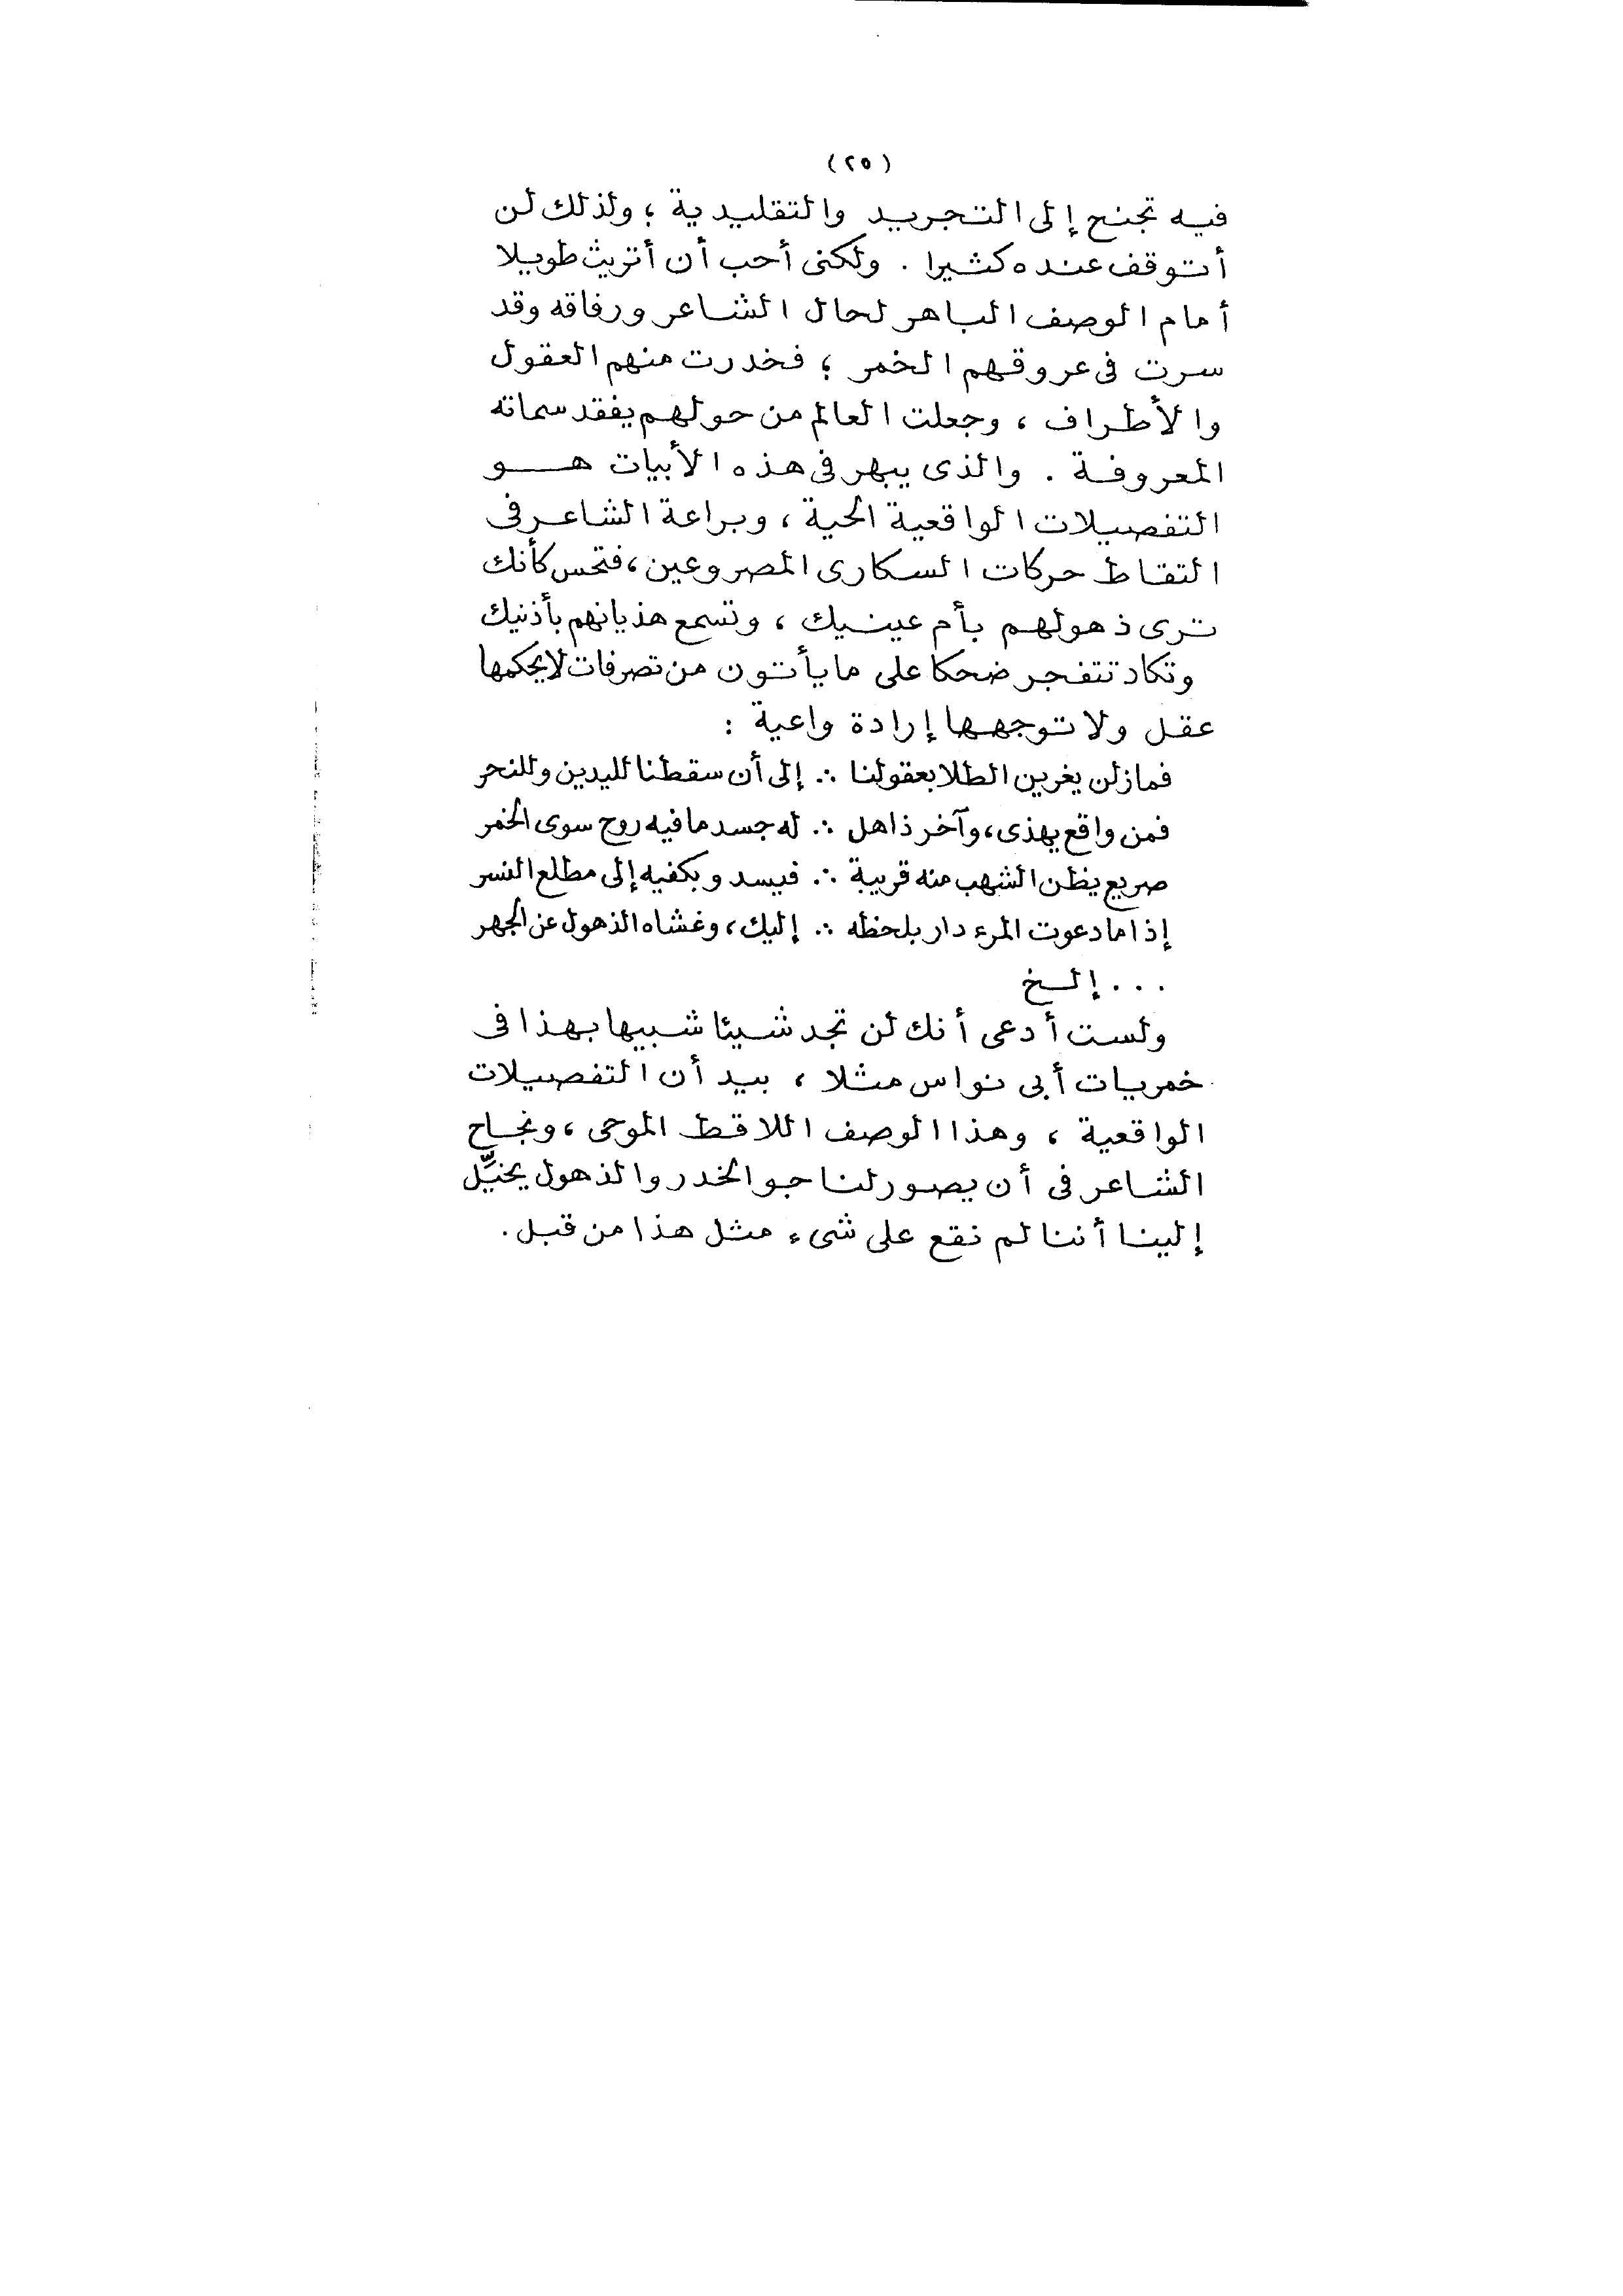 (٢٥)
فيه تجنح إلى التجريد والتقليدية ؛ ولذلك لن
أتوقف عنده كثيرا . ولكنى أحب أن أتريث طويلا
أمام الوصف الباهر لحال الشاعر ورفاقه وقد
سرت فى عروقهم الخمر ؛ فخدرت منهم العقول
والأطراف ، وجعلت العالم من حولهم يفقد سماته
المعروفة . والذى يبهر فى هذه الأبيات هو
التفصيلات الواقعية الحية ، وبراعة الشاعر فى
التقاط حركات السكارى المصروعين ، فتحس كأنك
ترى ذهولهم بأم عينيك ، وتسمع هذيانهم بأذنيك
وتكاد تتفجر ضحكا على ما يأتون من تصرفات لا يحكمها
عقل ولا توجهها إرادة واعية :
فمازلن يغرين الطلا بعقولنا ∴ إلى أن سقطنا لليدين وللنحر
فمن واقع يهذى ، وآخر ذاهل ∴ له جسد ما فيه روح سوى الخمر
صريع يظن الشهب منه قريبة ∴ فيسدو بكفيه إلى مطلع النسر
إذا ما دعوت المرء دار بلحظه ∴ إليك ، وغشاه الذهول عن الجهر
. . . إلخ
ولست أدعى أنك لن تجد شيئا شبيها بهذا فى
خمريات أبى نواس مثلا ، بيد أن التفصيلات
الواقعية ، وهذا الوصف اللاقط الموحى ، ونجاح
الشاعر فى أن يصور لنا جو الخدر والذهول يخيِّل
إلينا أننا لم نقع على شىء مثل هذا من قبل .